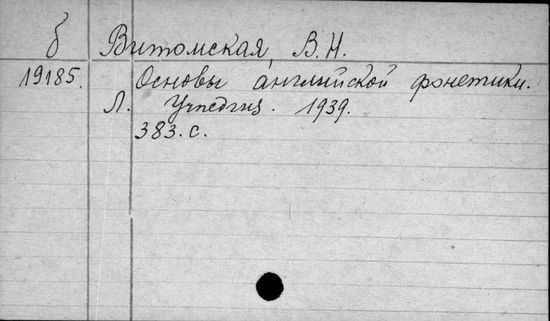 б Витомская, В.Н.
19185. Основы английской фонетики.
Л. Учпедгиз. 1939.
383.с.